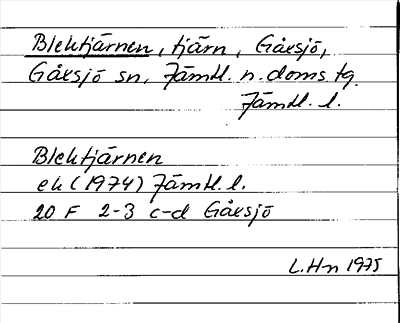 Blektjärnen, tjärn, Gåxsjö,
Gåxsjö sn, Jämtl. n. doms. tg.
Jämtl. l.
Blektjärnen
ek (1974) Jämtl. l.
20 F 2-3 c-d Gåxsjö
L. H-n 1975